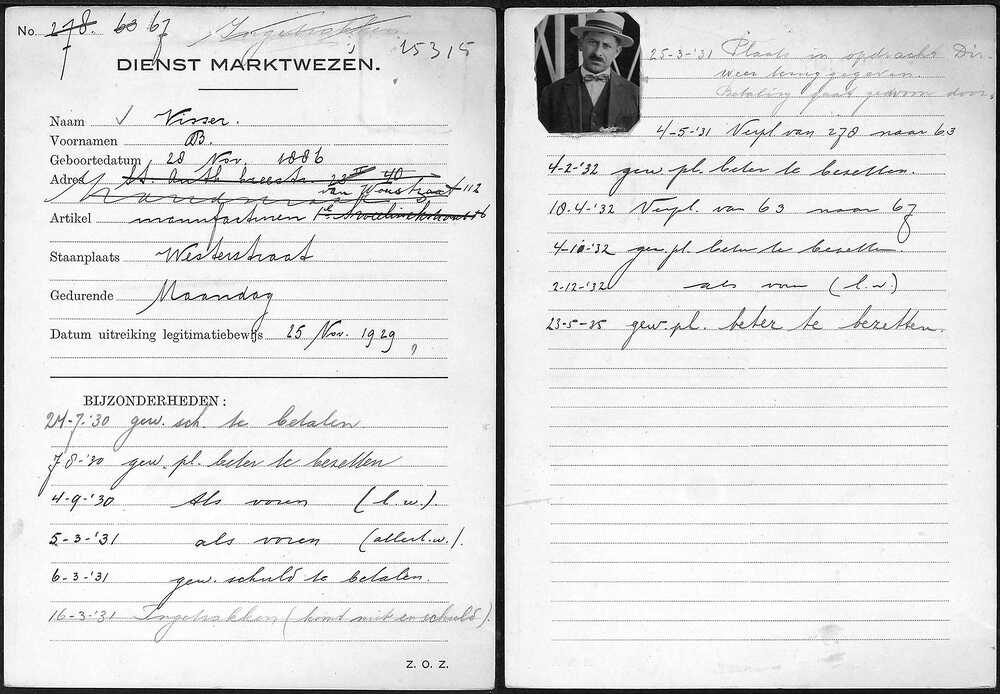 No. 278. 63 67
Ingetrokken
15315
DIENST MARKTWEZEN.
Naam √ Visser.
Voornamen B.
Geboortedatum 28 Nov. 1886
Adres St. Anth. breestr. 22 II 40
van Woustraat 112
Artikel manufacturen 1e Sweelinckstraat 6
Staanplaats Westerstraat
Gedurende Maandag
Datum uitreiking legitimatiebewijs 25 Nov. 1929
BIJZONDERHEDEN:
24-7-'30 gew. sch. te betalen
7 8-'30 gew. pl. beter te bezetten
4-9-'30 Als voren (l.w.).
5-3-'31 als voren (allerl.w.).
6-3-'31 gew. schuld te betalen.
16-3-'31 Ingetrokken (komt niet en schuld).
Z. O. Z.
25-3-'31 Plaats in opdracht Dir.
weer teruggegeven.
Betaling gaat gewoon door.
4-5-'31 Verpl van 278 naar 63
4-2-'32 gew. pl. beter te bezetten.
18.4-'32 Verpl. van 63 naar 67
4-10-'32 gew. pl. beter te bezetten
2-12-'32 als voren (l.w.)
23-5-35 gew. pl. beter te bezetten.